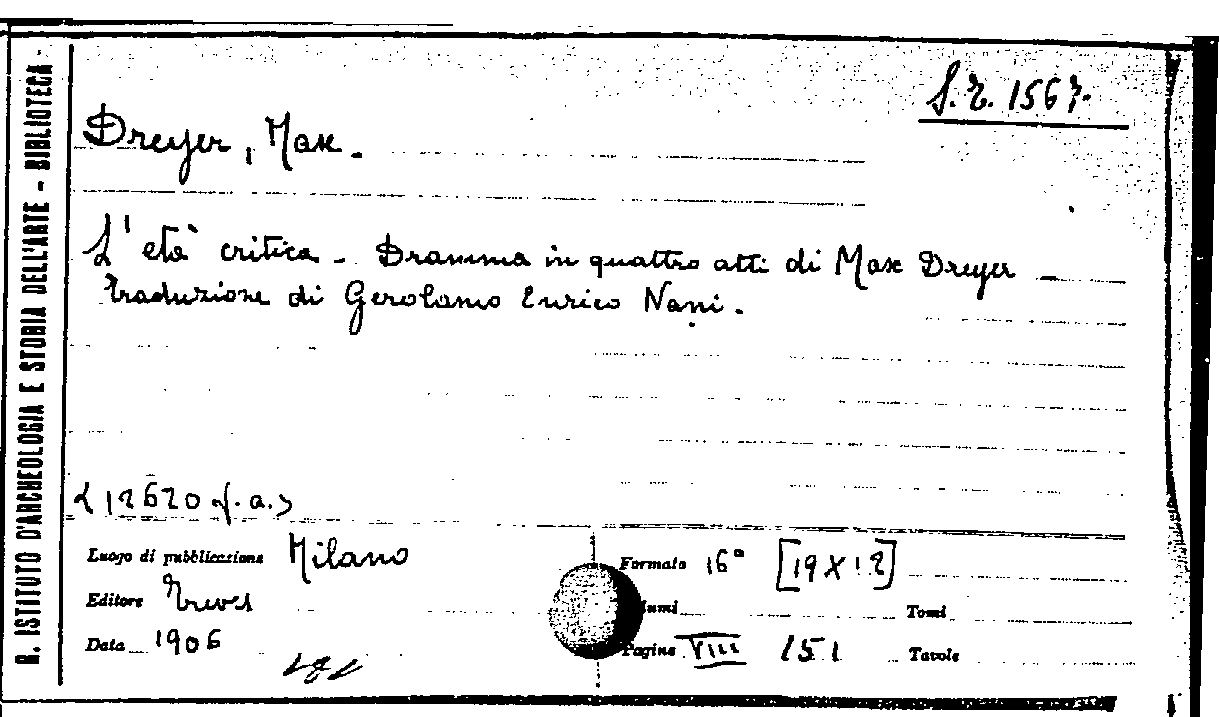 R. ISTITUTO D'ARCHEOLOGIA E STORIA DELL'ARTE - BIBLIOTECA
Dreyer, Max.
L'età critica - Dramma in quattro atti di Max Dreyer -
Traduzione di Gerolamo Enrico Nani.
<12620 f.a.>
Luogo di pubblicazione Milano
Editore Treves
Data 1906
Formato 16° [19 X 12]
Tomi
Pagine VIII 151 Tavole